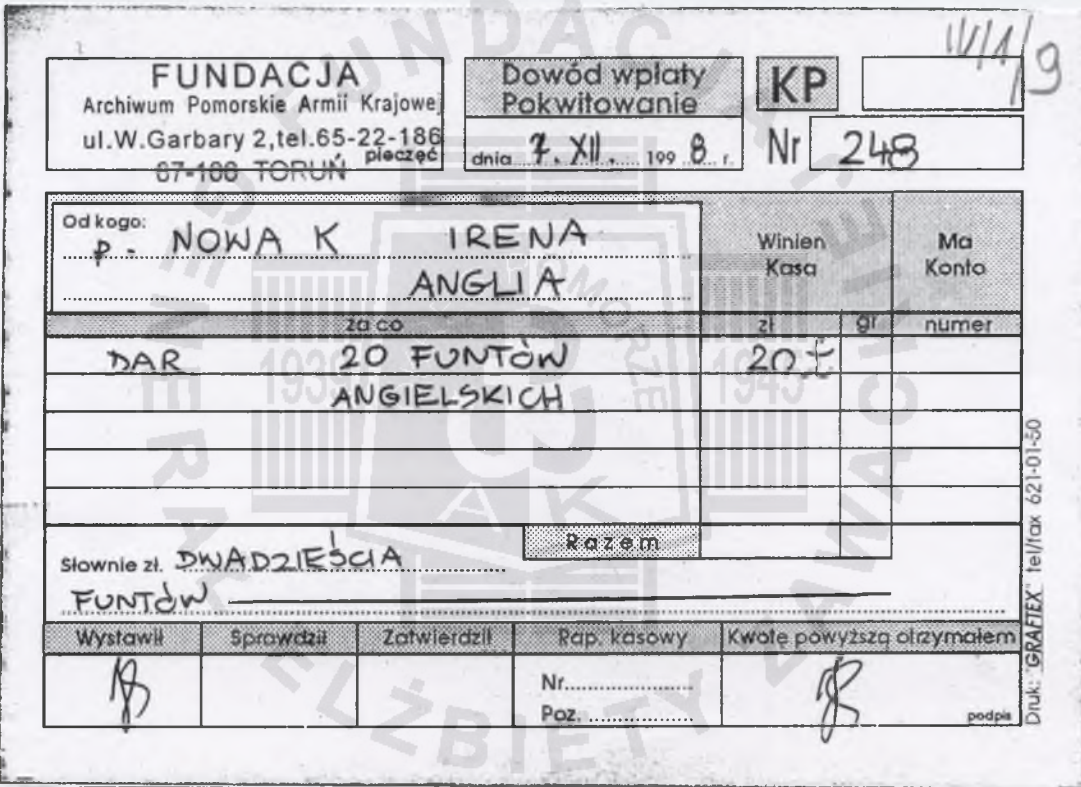 IV/1/9
FUNDACJA
Archiwum Pomorskie Armii Krajowej
ul.W.Garbary 2,tel.65-22-186
pieczęć
87-100 TORUŃ
Dowód wpłaty
Pokwitowanie
dnia 7. XII. 1998 r.
KP
Nr 248
Od kogo:
P. NOWAK IRENA
ANGLIA
Winien
Kasa
Ma
Konto
za co zł gr numer
DAR 20 FUNTÓW 20 £
ANGIELSKICH
Razem
Słownie zł. DWADZIEŚCIA
FUNTÓW
Wystawił Sprawdził Zatwierdził Rap. kasowy Kwotę powyższą otrzymałem
Nr
Poz.
podpis
Druk: "GRAFTEX" tel/fax 621-01-50
FUNDACJA GENERAŁ ELŻBIETY ZAWACKIEJ
POMORZE
1939 1945
AK